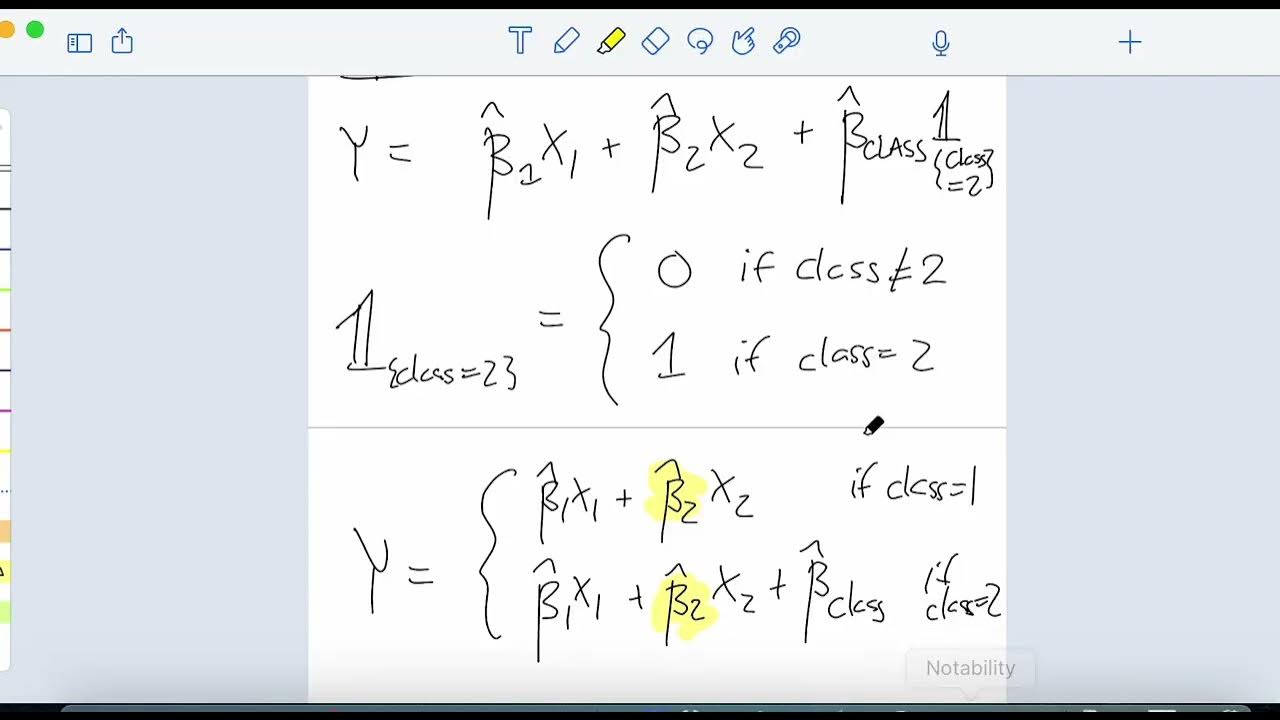 Y = β̂₁X₁ + β̂₂X₂ + β̂_CLASS 𝟙_{class=2}
𝟙_{class=2} = { 0 if class≠2
1 if class=2
Y = { β̂₁X₁ + β̂₂X₂ if class=1
β̂₁X₁ + β̂₂X₂ + β̂_class if class=2
Notability